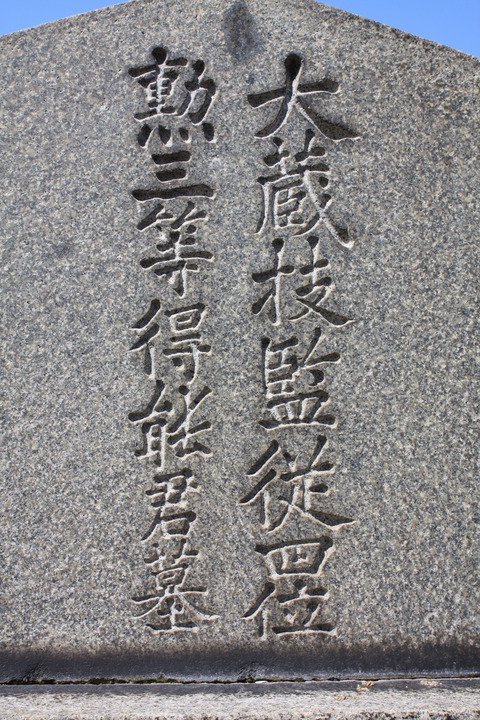 大蔵技監従四位
勲三等得能君墓